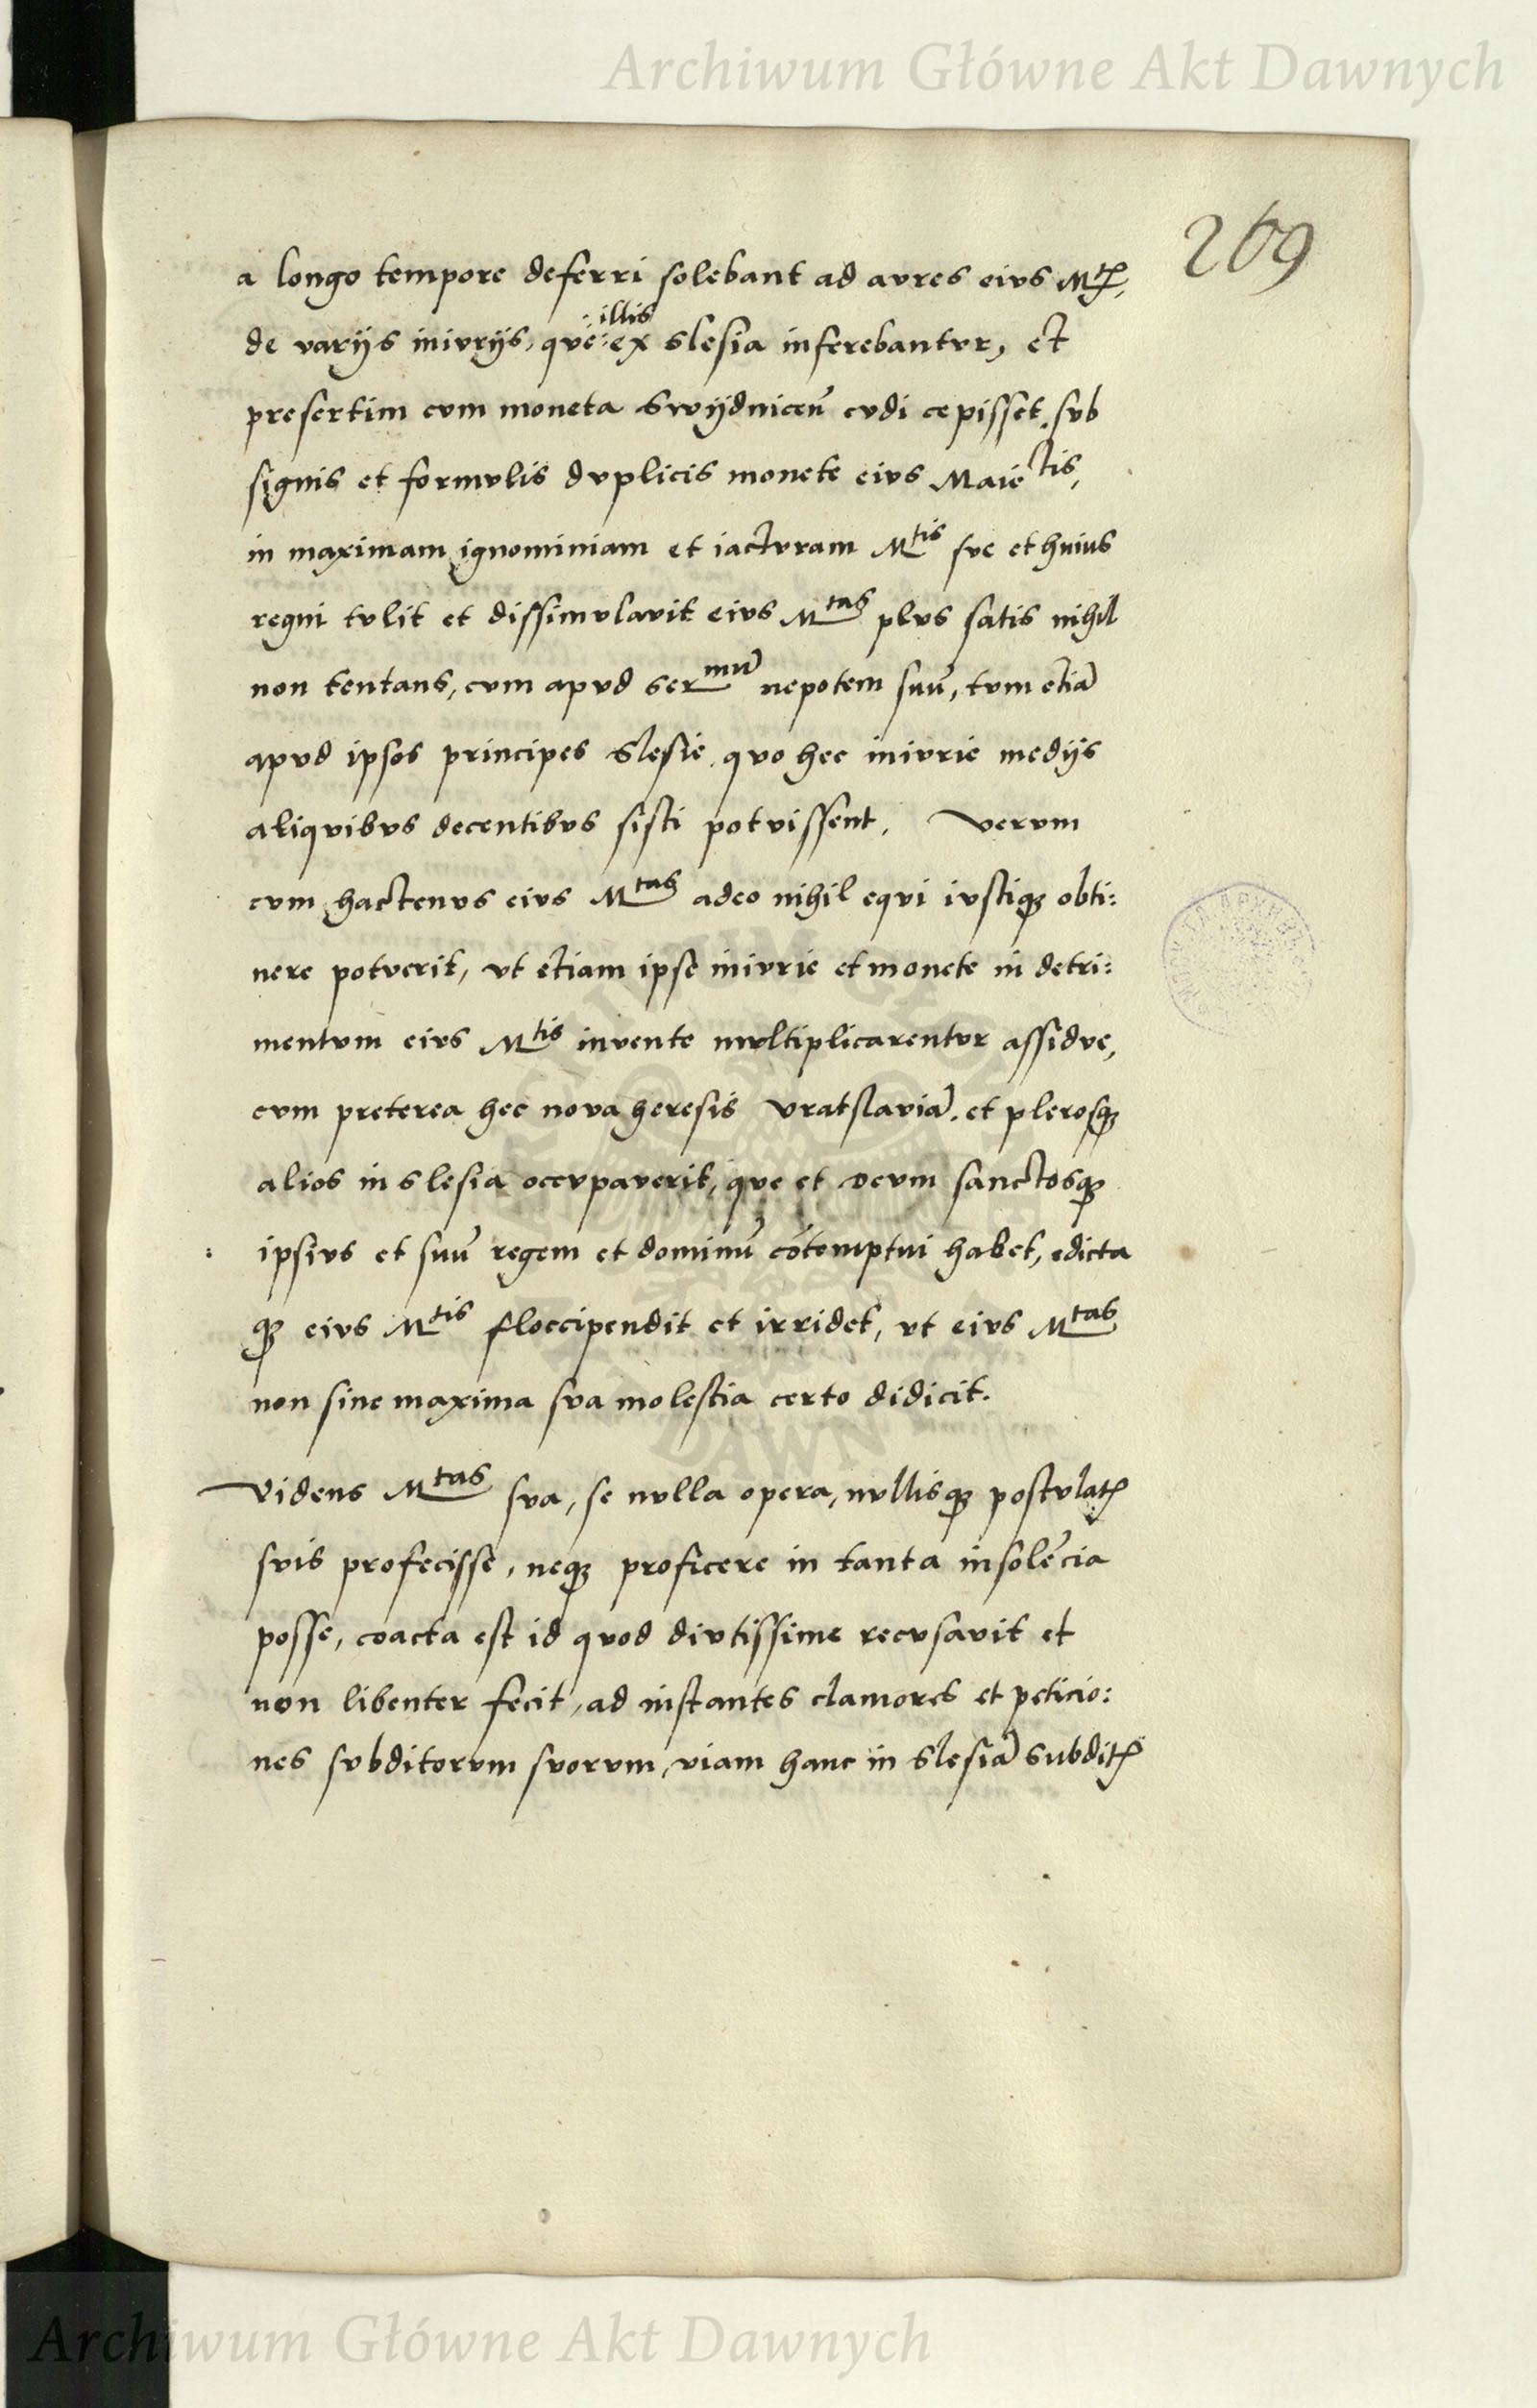 Archiwum Główne Akt Dawnych
269
a longo tempore deferri solebant ad avres eivs Mtis,
illis
de varijs inivrijs, que ex Slesia inferebantvr, et
presertim cvm moneta Swijdniceñ cvdi cepisset, svb
signis et formvlis dvplicis monete eivs Maiestis,
in maximam ignominiam et iactvram Mtis sve et huius
regni tvlit et dissimvlavit eivs Mtas plvs satis nihil
non tentans, cvm apvd Sermū nepotem suū, tvm etiā
apvd ipsos principes Slesie, qvo hec inivrie medijs
aliqvibvs decentibvs sisti potvissent. Vervm
cvm hactenvs eivs Mtas adeo nihil eqvi ivstiqꝫ obti:
nere potverit, vt etiam ipse inivrie et monete in detri:
mentvm eivs Mtis invente mvltiplicarentvr assidve,
cvm preterea hec nova heresis Vratslaviā, et plerosqꝫ
alios in Slesia occvpaverit, qve et Devm sanctosqꝫ
ipsivs et suū regem et dominū cōtemptui habet, edicta
qꝫ eivs Mtis floccipendit et irridet, vt eivs Mtas
non sine maxima sva molestia certo didicit.
Videns Mtas sva, se nvlla opera, nvllisqꝫ postvlatꝭ
svis profecisse, neqꝫ proficere in tanta insolēcia
posse, coacta est id qvod divtissime recvsavit et
non libenter fecit, ad instantes clamores et peticio:
nes svbditorvm svorvm, viam hanc in Slesiā subditꝭ
Archiwum Główne Akt Dawnych